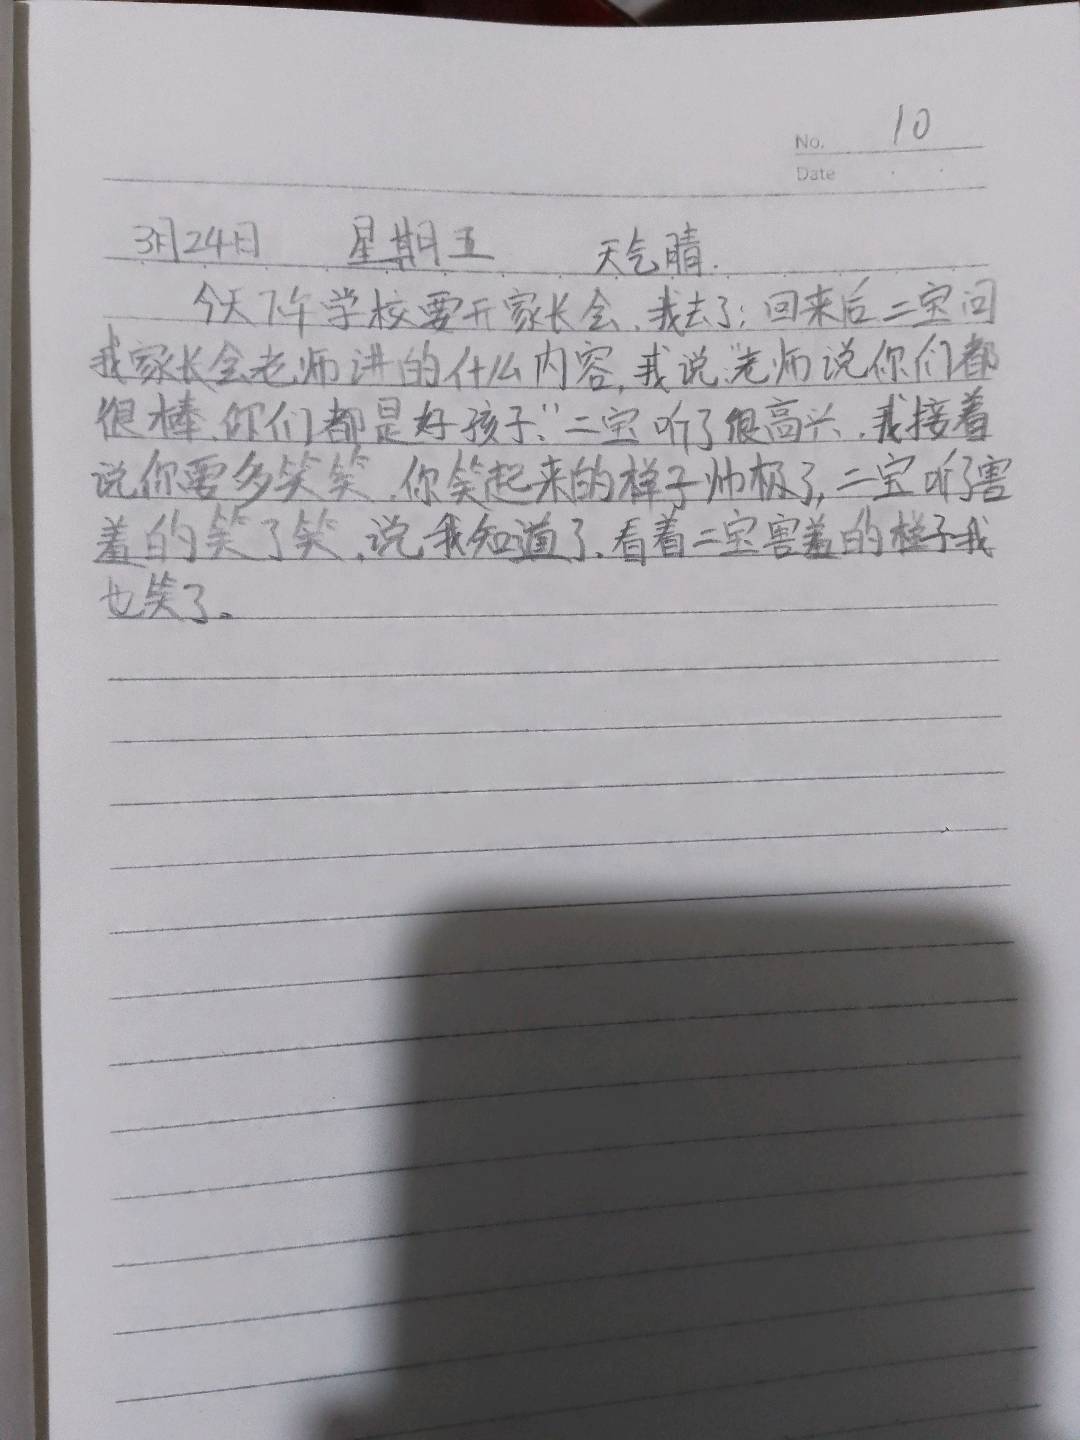 No. 10
Date
3月24日 星期五 天气晴.
今天下午学校要开家长会、我去了;回来后二宝问
我家长会老师讲的什么内容,我说:"老师说你们都
很棒、你们都是好孩子、"二宝听了很高兴、我接着
说你要多笑笑、你笑起来的样子帅极了,二宝听了害
羞的笑了笑、说我知道了、看着二宝害羞的样子我
也笑了。